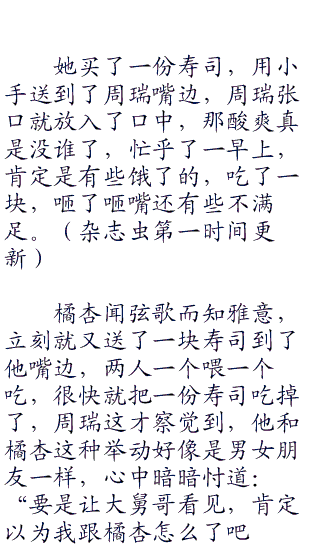 她买了一份寿司，用小
手送到了周瑞嘴边，周瑞张
口就放入了口中，那酸爽真
是没谁了，忙乎了一早上，
肯定是有些饿了的，吃了一
块，咂了咂嘴还有些不满
足。（杂志虫第一时间更
新）
橘杏闻弦歌而知雅意，
立刻就又送了一块寿司到了
他嘴边，两人一个喂一个
吃，很快就把一份寿司吃掉
了，周瑞这才察觉到，他和
橘杏这种举动好像是男女朋
友一样，心中暗暗忖道：
“要是让大舅哥看见，肯定
以为我跟橘杏怎么了吧